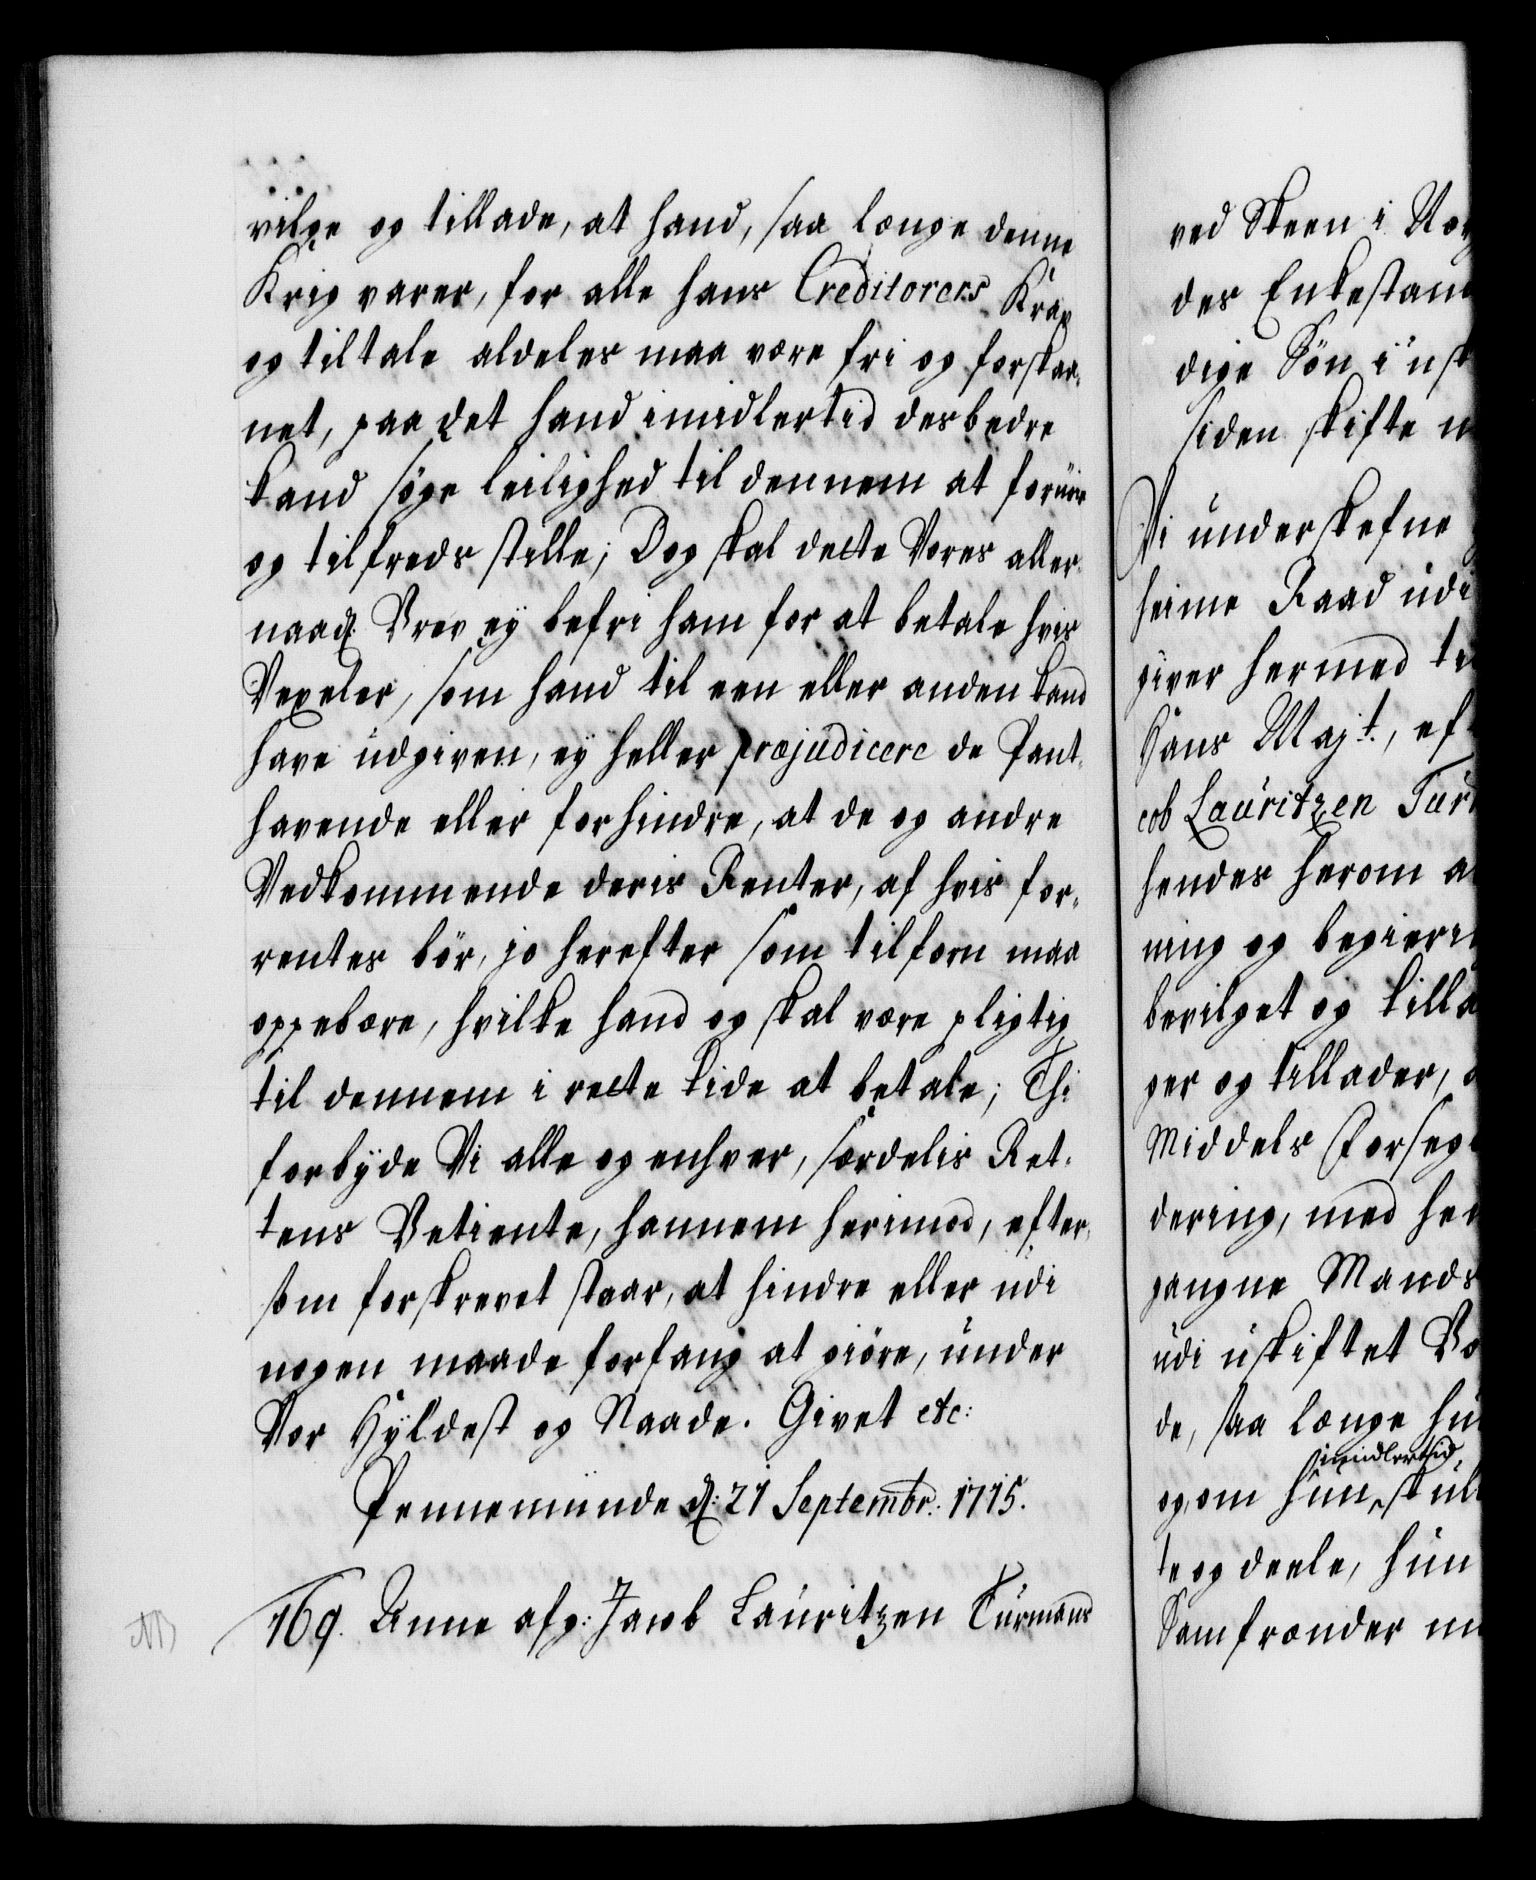 vilge og tillade, at hand, saa længe denne
Krig varer, for alle hans Creditorers Kraf
og tiltale aldeles maa være fri og forskaa-
net, paa det hand imidlertid desbedre
kand søge leilighed til dennem at fornüie
og tilfreds stille; Dog skal dette Vores aller-
naad. Brev ey befri ham for at betale hvis
Vexeler, som hand til een eller anden kand
have udgiven, ey heller præjudicere de Pant-
havende eller forhindre, at de og andre
Vedkommende deris Renter, af hvis for-
rentes bör, jo herefter som tilforn maa
oppebære, hvilke hand og skal være pligtig
til dennem i rette tide at betale; Thi
forbÿde Vi alle og enhver, særdelis Ret-
tens Betiente, hannem herimod, efter-
som forskrevet staar, at hindre eller udi
nogen maade forfang at giöre, under
Vor Hÿldest og Naade. Givet etc:
Pennemünde d: 21 Septembr: 1715.
169. Anne afg: Jacob Lauritzen Turmans
ved Skeen i Nor
des Enkestan
dige Sön i usk
siden skifte m
Vi underskefne
heime Raad udi
giver hermed ti
Hans Majt., ef
cob Lauritzen Tur
hendes herom a
ning og begieri
bevilget og tilla
ger og tillader,
Middels Forseg
dering, med hen
gangne Mands
udi uskiftet Bo
de, saa længe hu
imidlertid
og om hun skul
te og deele, hun
Samfrænder m